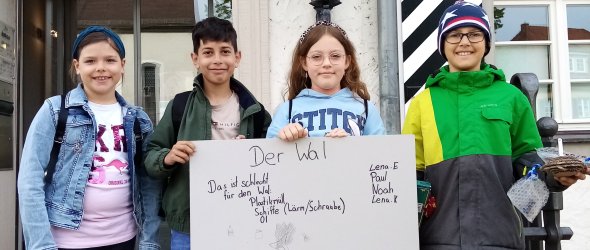 Der Wal
Das ist schlecht
für den Wal:
Plastikmüll
Schiffe (Lärm/Schraube)
Öl
Lena. E
Paul
Noah
Lena. K
STITCH